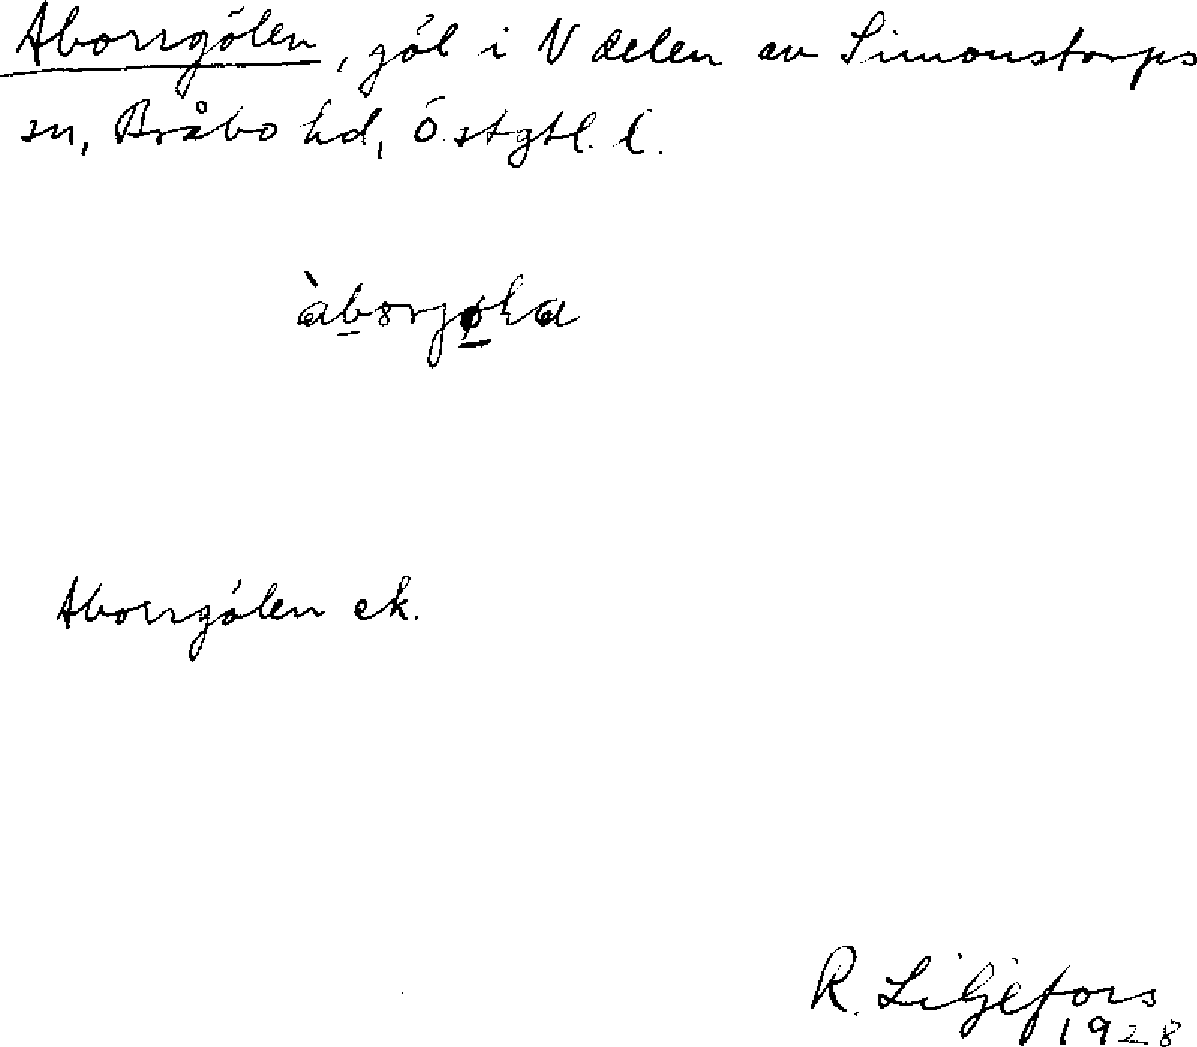 Aborrgölen, göl i N delen av Simonstorps
sn, Bråbo hd, Östgtl. l.
Aborrgölen ek.
R. Liljefors
1928